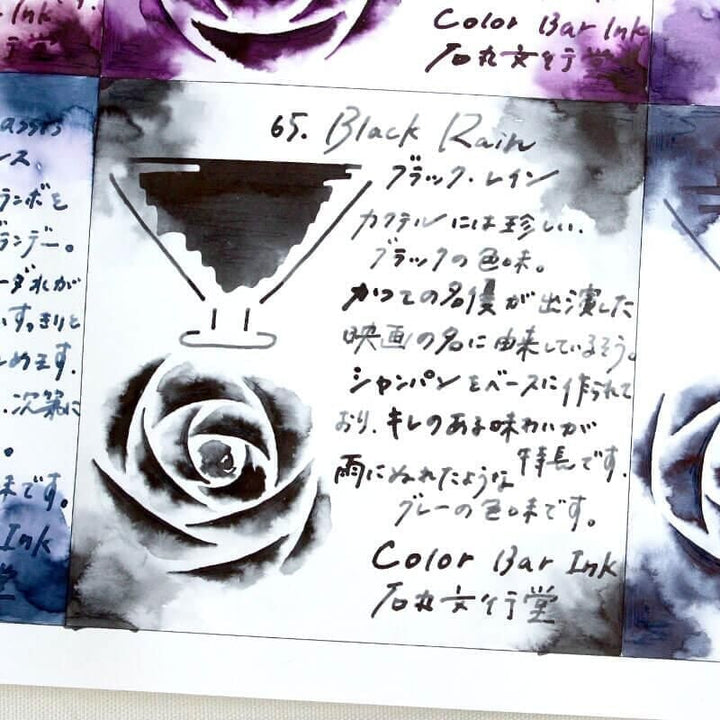 Ink
Color Bar Ink
石丸文行堂
65. Black Rain
ブラック・レイン
カクテルには珍しい、
ブラックの色味。
かつての名優が出演した
映画の名に由来しているそう。
シャンパンをベースに作られて
おり、キレのある味わいが
特長です。
雨にぬれたような
グレーの色味です。
Color Bar Ink
石丸文行堂
assis
ス、
ランボを
ランデー。
すっきりと
めます。
次第に
味です。
Ink
堂